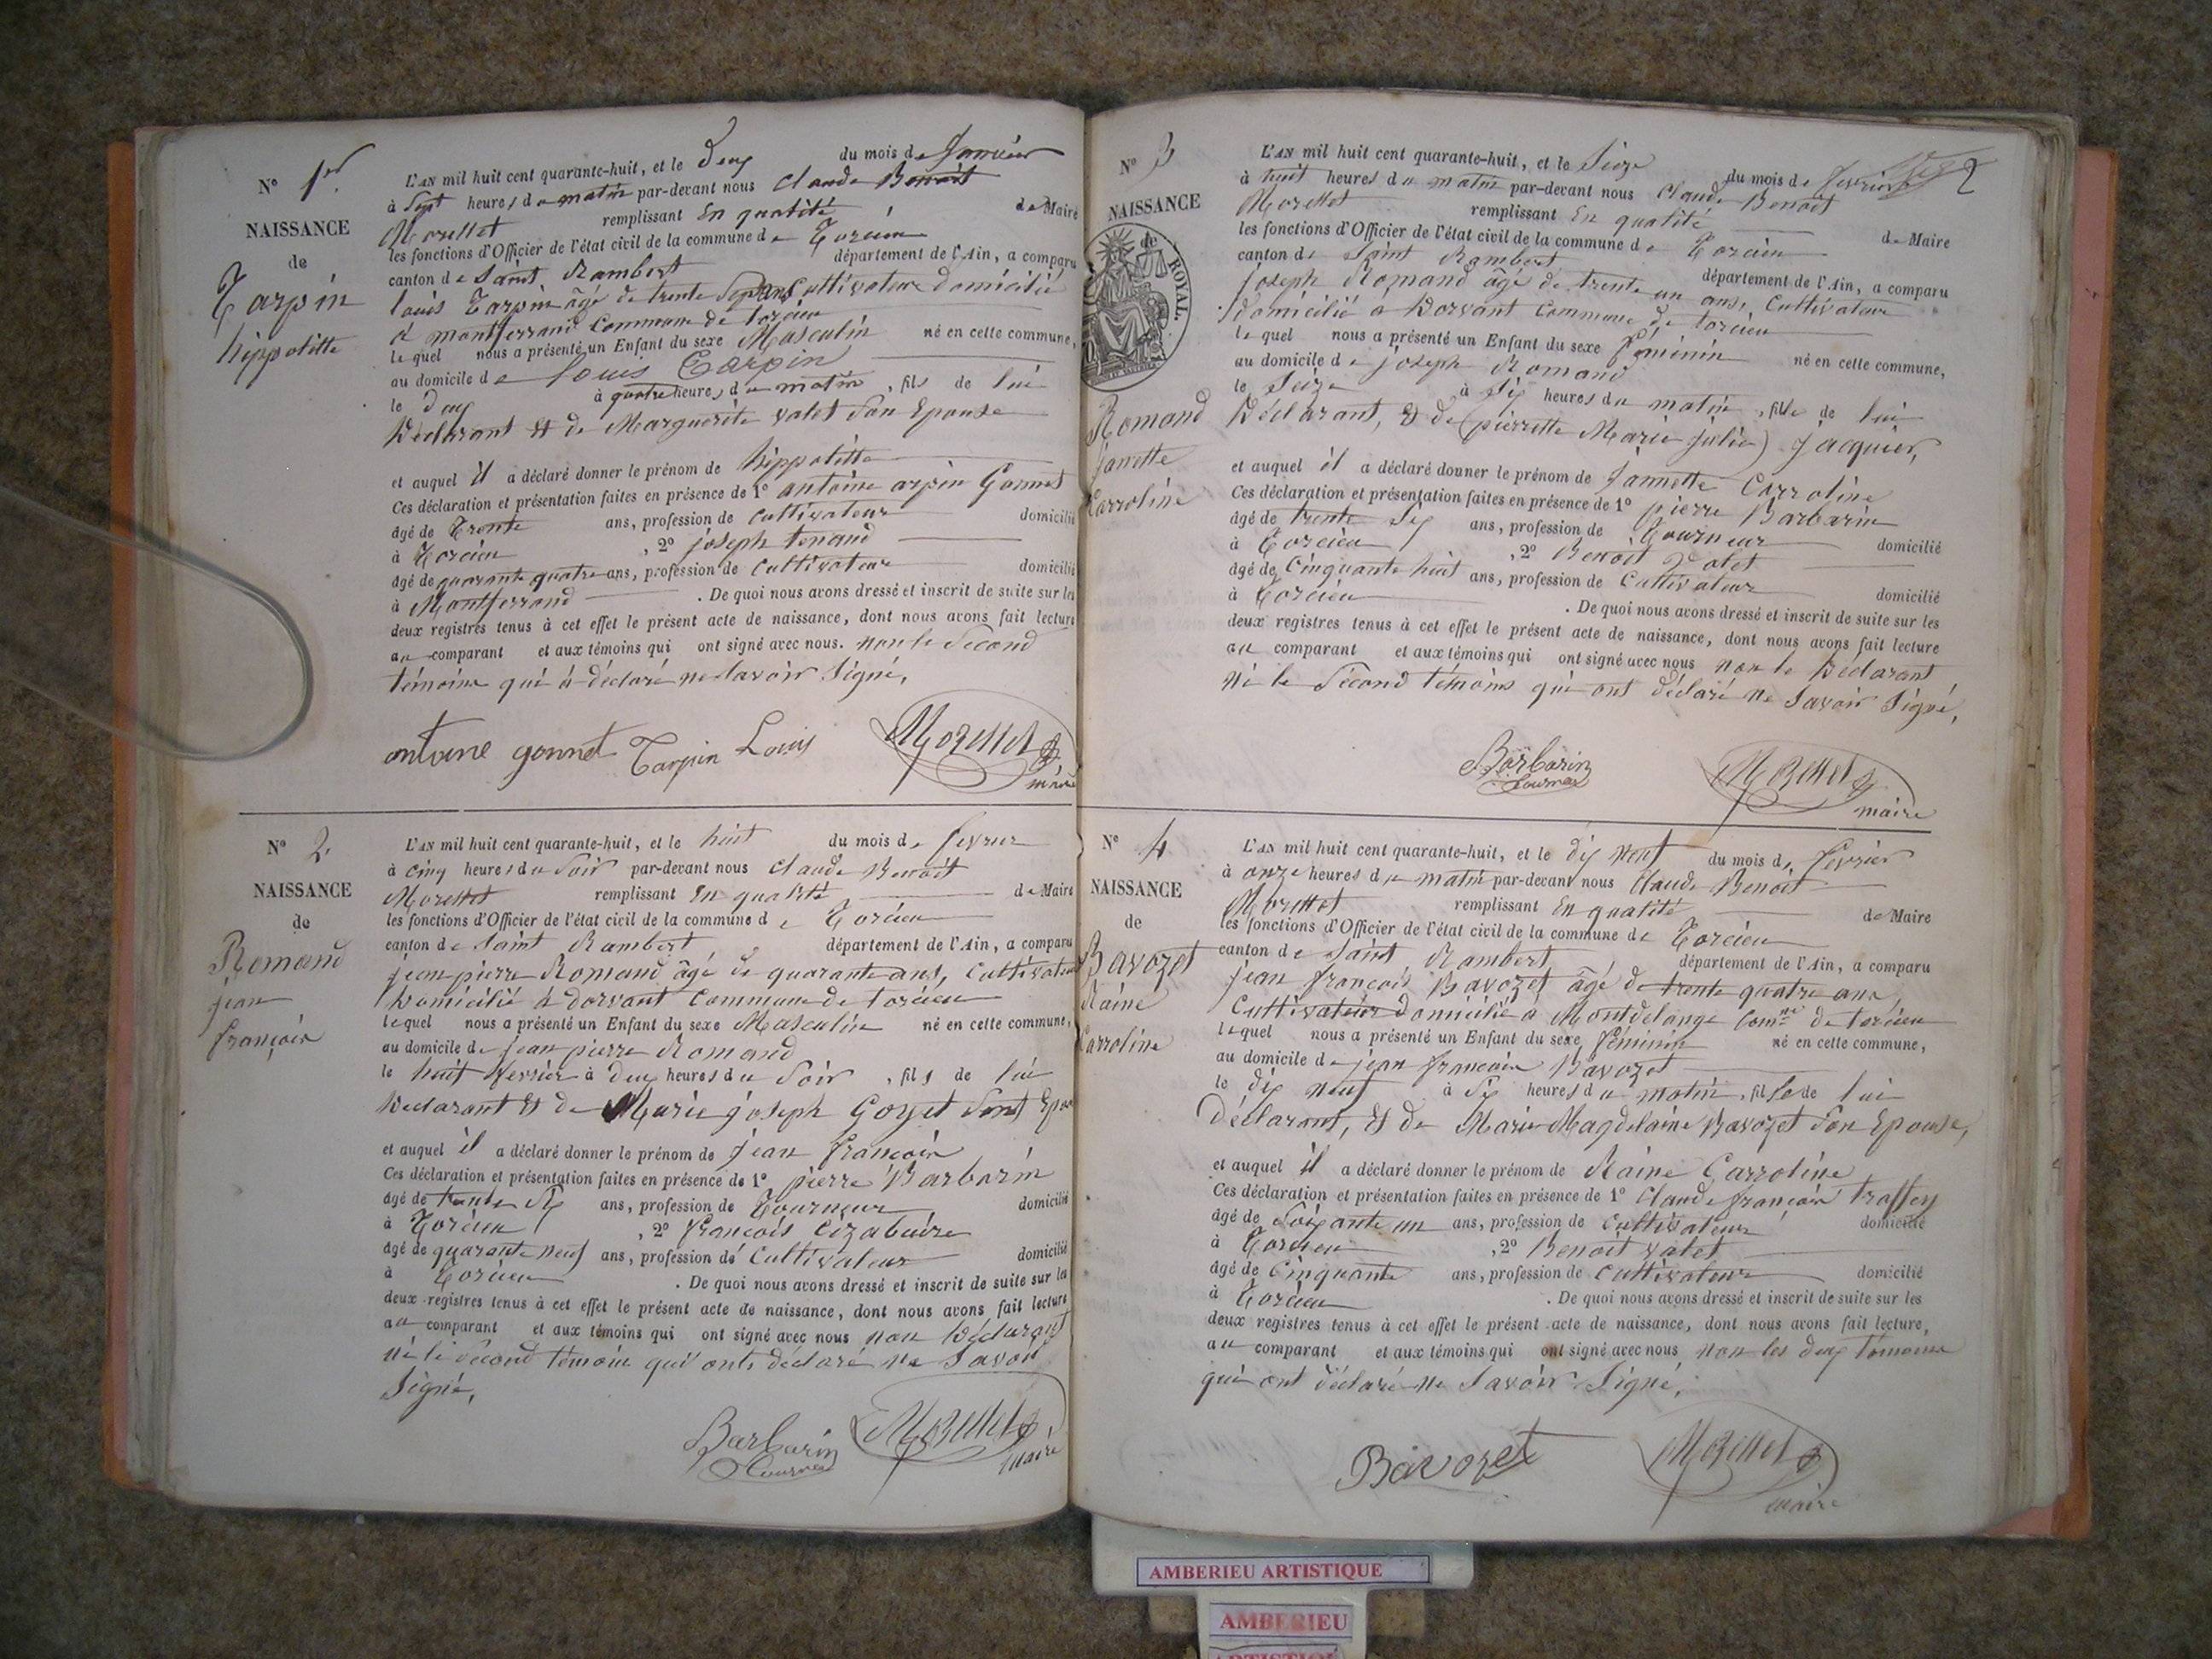 N° 1er
NAISSANCE
de
Tarpin
hippolitte
L'AN mil huit cent quarante-huit, et le deux du mois de Janvier
à Sept heures du matin par-devant nous Claude Benoit
Morettet remplissant En qualité de Maire
les fonctions d'Officier de l'état civil de la commune de Torcieu
canton de Saint Rambert département de l'Ain, a comparu
louis Tarpin âgé de trente Sept ans, Cultivateur domicilié
à montferrand Commune de torcieu
lequel nous a présenté un Enfant du sexe Masculin né en cette commune,
au domicile de louis Tarpin
le deux à quatre heures du matin, fils de lui
Déclarant Et de Marguerite valet Son Epouse
et auquel il a déclaré donner le prénom de hippolitte
Ces déclaration et présentation faites en présence de 1° antoine arpin Gonnet
âgé de Trente ans, profession de Cultivateur domicilié
à Torcieu, 2° joseph tenand
âgé de quarante quatre ans, profession de Cultivateur domicilié
à Montferrand. De quoi nous avons dressé et inscrit de suite sur les
deux registres tenus à cet effet le présent acte de naissance, dont nous avons fait lecture
au comparant et aux témoins qui ont signé avec nous. non le Second
témoins qui à déclaré ne Savoir Signé,
antoine gonnet Tarpin Louis Morettet
maire
N° 2
NAISSANCE
de
Romand
jean
françois
L'AN mil huit cent quarante-huit, et le huit du mois de fevrier
à cinq heures du Soir par-devant nous Claude Benoit
Morettet remplissant En qualité de Maire
les fonctions d'Officier de l'état civil de la commune de Torcieu
canton de Saint Rambert département de l'Ain, a comparu
jean pierre Romand âgé de quarante ans, Cultivateur
Domicilié à dorvant Commune de torcieu
lequel nous a présenté un Enfant du sexe Masculin né en cette commune,
au domicile de jean pierre Romand
le huit fevrier à deux heures du Soir, fils de lui
Déclarant Et de Marie joseph Goyet Sont
et auquel il a déclaré donner le prénom de jean françois
Ces déclaration et présentation faites en présence de 1° pierre Barbarin
âgé de trente Six ans, profession de Tourneur domicilié
à Torcieu, 2° François Cizabuire
âgé de quarante neuf ans, profession de Cultivateur domicilié
à Torcieu. De quoi nous avons dressé et inscrit de suite sur les
deux registres tenus à cet effet le présent acte de naissance, dont nous avons fait lecture
au comparant et aux témoins qui ont signé avec nous non Déclarant
ni le Second témoin qui onts déclaré ne Savoir
Signé,
Barbarin Morettet
Tourneur maire
N° 3
NAISSANCE
de
ROYAL.
Romand
janette
Carroline
2
L'AN mil huit cent quarante-huit, et le Seize du mois de fevrier
à huit heures du matin par-devant nous Claude Benoit
Morettet remplissant En qualité de Maire
les fonctions d'Officier de l'état civil de la commune de Torcieu
canton de Saint Rambert département de l'Ain, a comparu
joseph Romand âgé de trente un ans, Cultivateur
domicilié à Dorvant Commune de torcieu
lequel nous a présenté un Enfant du sexe féminin né en cette commune,
au domicile de joseph Romand
le Seize à Six heures du matin, fille de lui
Déclarant, Et de (pierrette Marie julie) Jacquier,
et auquel il a déclaré donner le prénom de jannette Carroline
Ces déclaration et présentation faites en présence de 1° pierre Barbarin
âgé de trente Six ans, profession de Tourneur domicilié
à Torcieu, 2° Benoit valet
âgé de Cinquante huit ans, profession de Cultivateur domicilié
à Torcieu. De quoi nous avons dressé et inscrit de suite sur les
deux registres tenus à cet effet le présent acte de naissance, dont nous avons fait lecture
au comparant et aux témoins qui ont signé avec nous non le Déclarant
ni le Second témoins qui ont déclaré ne Savoir Signé,
Barbarin Morettet
Tourneur maire
N° 4
NAISSANCE
de
Bavozet
Raine
Carroline
L'AN mil huit cent quarante-huit, et le dix neuf du mois de fevrier
à onze heures du matin par-devant nous Claude Benoit
Morettet remplissant En qualité de Maire
les fonctions d'Officier de l'état civil de la commune de Torcieu
canton de Saint Rambert département de l'Ain, a comparu
jean françois Bavozet âgé de trente quatre ans
Cultivateur domicilié à Montdelange Comne de torcieu
lequel nous a présenté un Enfant du sexe féminin né en cette commune,
au domicile de jean françois Bavozet
le dix neuf à Six heures du matin, fille de lui
Déclarant, Et de Marie Magdelaine Bavozet Son Epouse,
et auquel il a déclaré donner le prénom de Raine Carroline
Ces déclaration et présentation faites en présence de 1° Claude françois traffey
âgé de Soixante un ans, profession de Cultivateur domicilié
à Torcieu, 2° Benoit valet
âgé de Cinquante ans, profession de Cultivateur domicilié
à Torcieu. De quoi nous avons dressé et inscrit de suite sur les
deux registres tenus à cet effet le présent acte de naissance, dont nous avons fait lecture,
au comparant et aux témoins qui ont signé avec nous non les deux témoins
qui ont déclaré ne Savoir Signé,
Bavozet Morettet
maire
AMBERIEU ARTISTIQUE
AMBERIEU
ARTISTIQUE